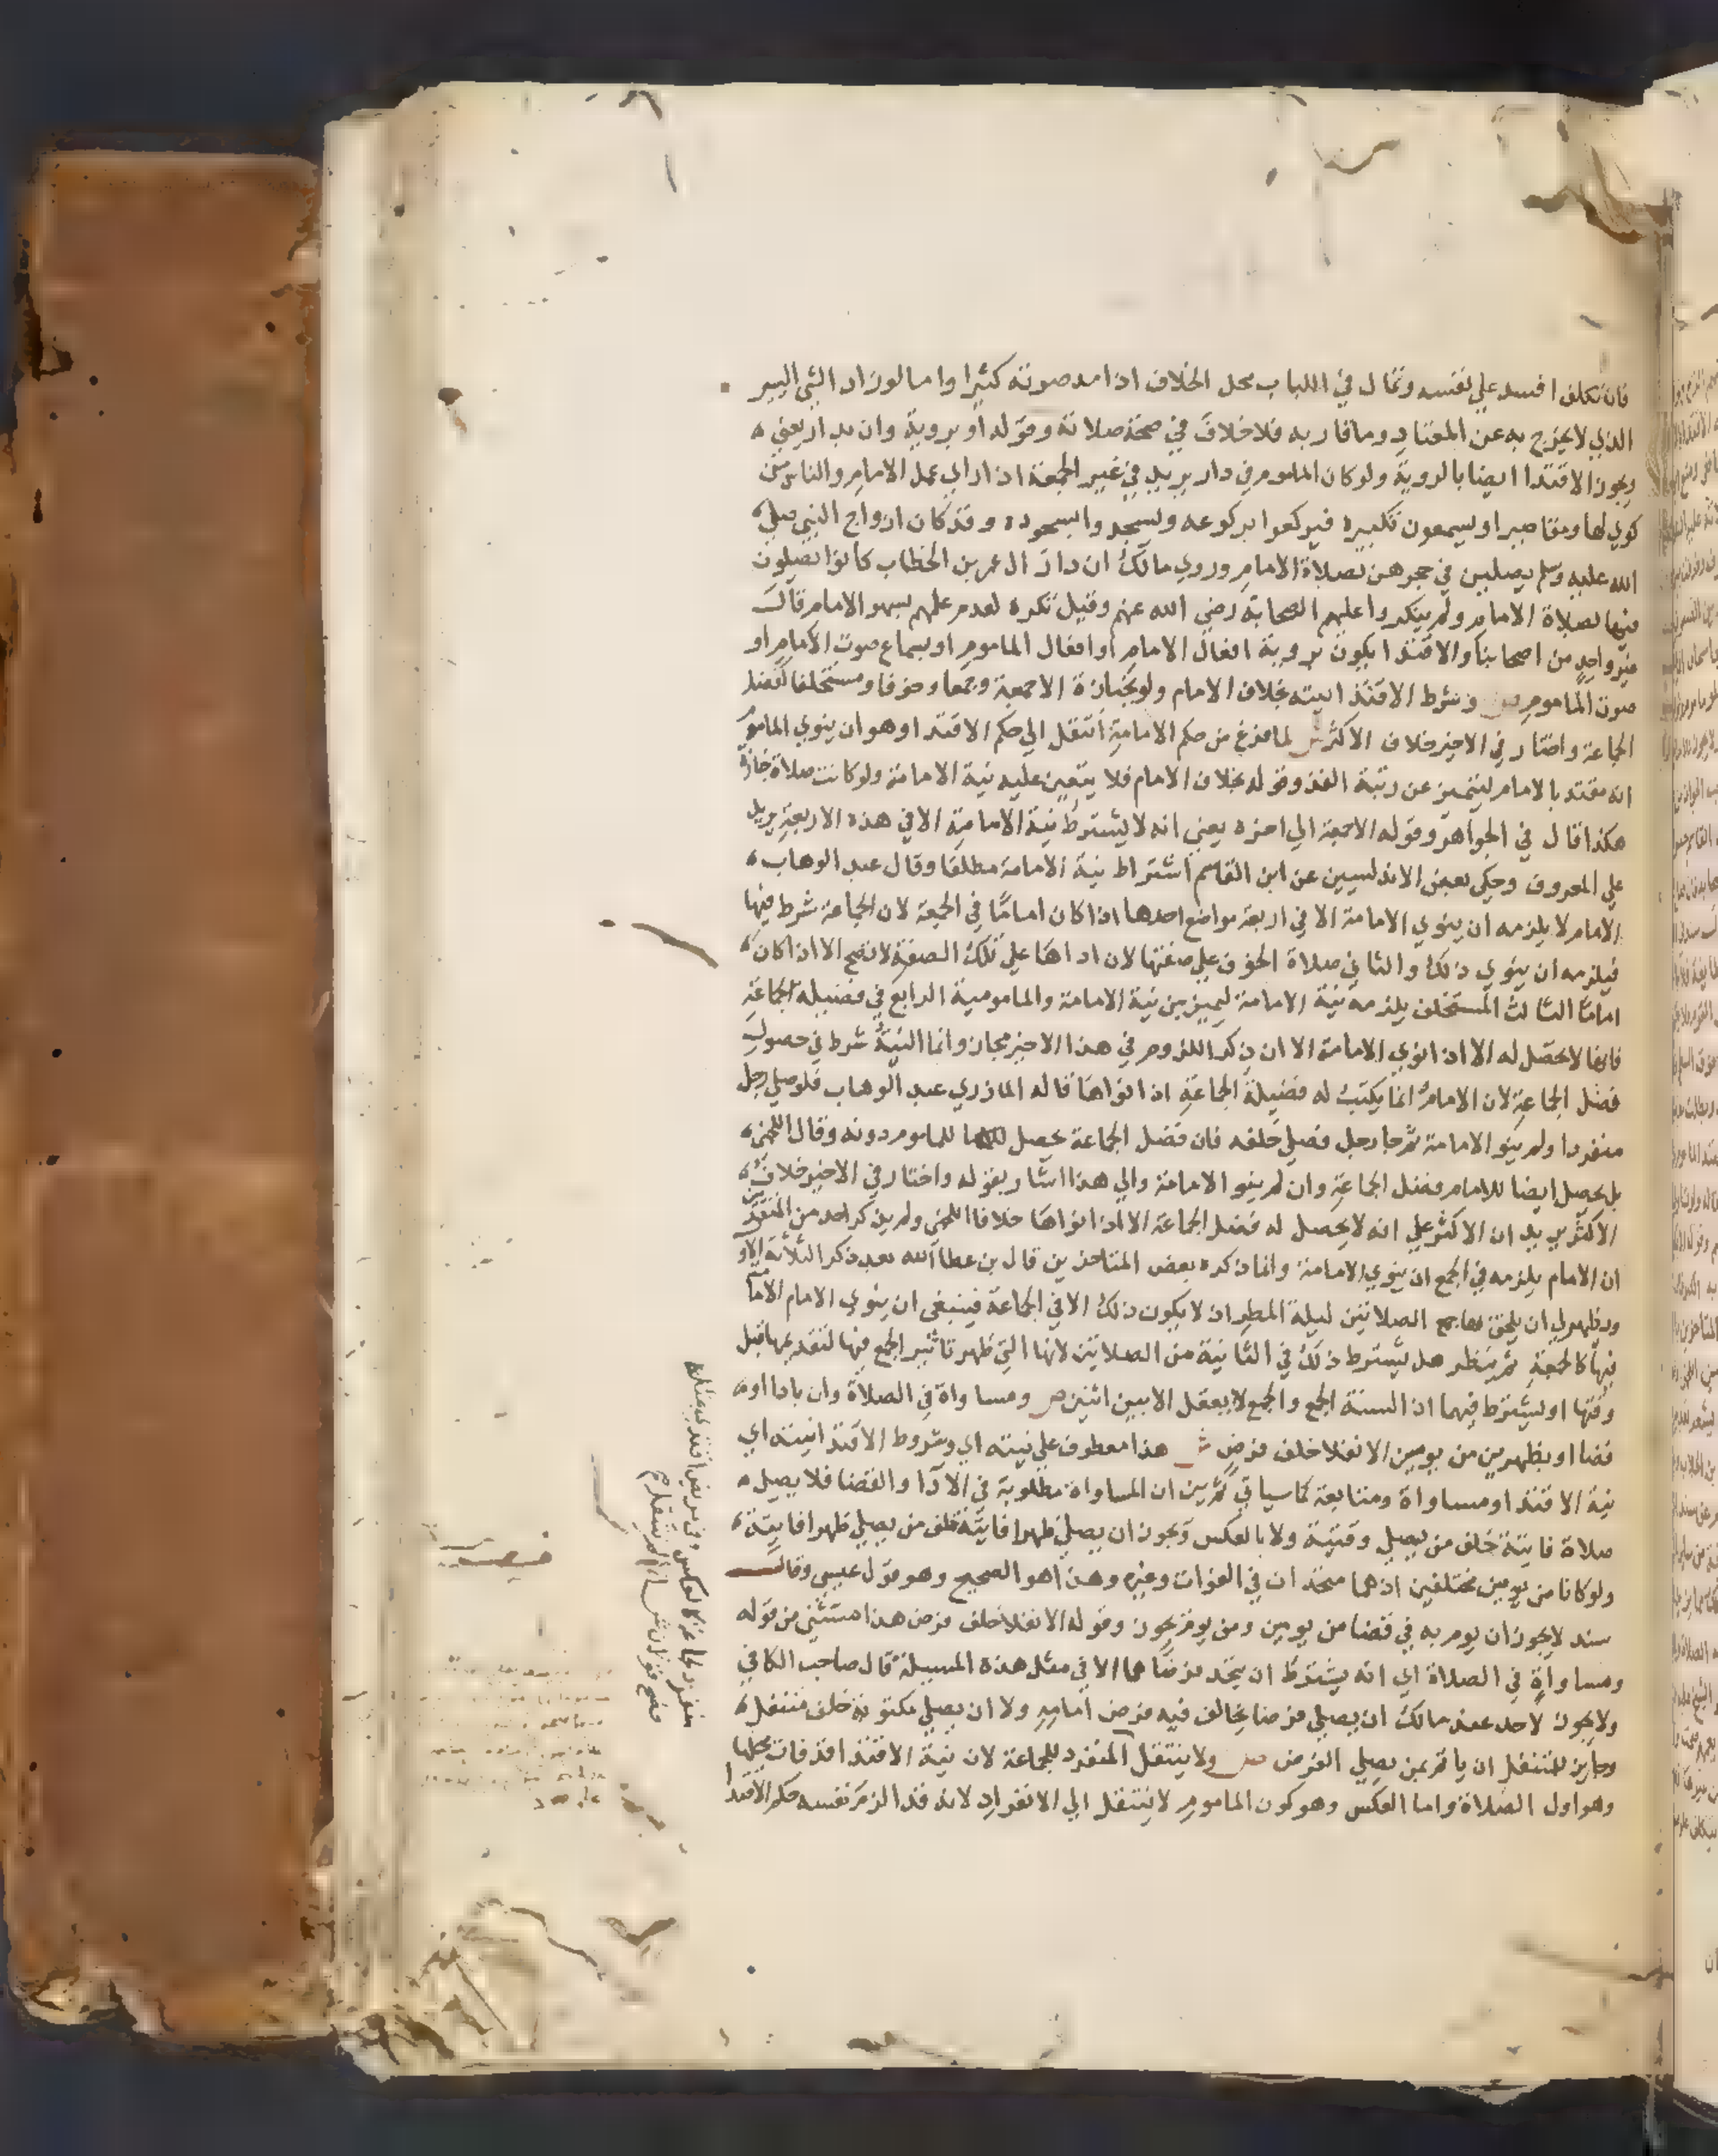 فان تكلف افسد علي نفسه وقال في اللباب محل الخلاف اذا مد صوته كثيرا واما لو زاد الشي اليسير
الذي لا يخرج به عن المعتاد وما قاربه فلا خلاف في صحة صلاته وقوله او بروية وان بدار يعني
ويجوز الاقتدا ايضا بالروية ولو كان الماموم في دار يريد في غير الجمعة اذا راي عمل الامام والناس من
كوي لها ومقاصير او يسمعون تكبيره فيركعوا بركوعه ويسجدوا بسجوده وقد كان ازواج النبي صلي
الله عليه وسلم يصلين في حجرهن بصلاة الامام وروي مالك ان دار ال عمر بن الخطاب كانوا يصلون
فيها بصلاة الامام ولم ينكروا عليهم الصحابة رضي الله عنهم وقيل تكره لعدم علمهم بسهو الامام قال
غير واحد من اصحابنا والاقتدا يكون بروية افعال الامام او افعال الماموم او بسماع صوت الامام او
صوت الماموم ص وشرط الاقتدا نيته بخلاف الامام ولو بجنازة الا جمعة وجمعا وخوفا ومستخلفا كفضل
الجماعة واختار في الاخير خلاف الاكثر ش لما فرغ من حكم الامامة انتقل الي حكم الاقتدا وهو ان ينوي الماموم
انه مقتد بالامام ليتميز عن رتبة الفذ وقوله بخلاف الامام فلا يتعين عليه نية الامامة ولو كانت صلاة جنازة
هكذا قال في الجواهر وقوله الا جمعة الي اخره يعني انه لا يشترط نية الامامة الا في هذه الاربعة يريد
علي المعروف وحكي بعض الاندلسيين عن ابن القاسم اشتراط نية الامامة مطلقا وقال عبد الوهاب
الامام لا يلزمه ان ينوي الامامة الا في اربعة مواضع احدها اذا كان اماما في الجمعة لان الجماعة شرط فيها
فيلزمه ان ينوي ذلك والثاني صلاة الخوف علي صفتها لان اداها علي تلك الصفة لا تصح الا اذا كان
اماما الثالث المستخلف يلزمه نية الامامة ليميز بين نية الامامة والمامومية الرابع في فضيلة الجماعة
فانها لا تحصل له الا اذا نوي الامامة الا ان ذكر اللزوم في هذا الاخير مجاز وانما النية شرط في حصول
فضل الجماعة لان الامام انما يكتب له فضيلة الجماعة اذا نواها قاله المازري عبد الوهاب فلو صلي رجل
منفردا ولم ينو الامامة ثم جا رجل فصلي خلفه فان فضل الجماعة يحصل للماموم دونه وقال اللخمي
بل يحصل ايضا للامام فضل الجماعة وان لم ينو الامامة والي هذا اشار بقوله واختار في الاخير خلاف
الاكثر يريد ان الاكثر علي انه لا يحصل له فضل الجماعة الا اذا نواها خلافا اللخمي ولم يذكر احد من المتقدمين
ان الامام يلزمه في الجمع ان ينوي الامامة وانما ذكره بعض المتاخرين قال بن عطا الله بعد ذكر الثلاثة الاو
ويظهر لي ان يلحق بها جمع الصلاتين ليلة المطر اذ لا يكون ذلك الا في الجماعة فينبغي ان ينوي الامام الاما
فيها كالجمعة ثم ينظر هل يشترط ذلك في الثانية من الصلاتين لانها التي ظهر تاثير الجمع فيها لتقديمها قبل
وقتها او يشترط فيهما اذ السنة الجمع والجمع لا يعقل الا بين اثنين ص ومساواة في الصلاة وان بادا او
قضا او بظهرين من يومين الا نفلا خلف فرض ش هذا معطوف علي نيته اي وشروط الاقتدا نيته اي
نية الاقتدا ومساواة ومتابعة كما سياتي ثم بين ان المساواة مطلوبة في الادا والقضا فلا يصلي
صلاة فايتة خلف من يصلي وقتية ولا بالعكس ويجوز ان يصلي ظهرا فايتة خلف من يصلي ظهرا فايتة
ولو كانا من يومين مختلفين اذ هما متحدان في الفوات وغيره وهذا هو الصحيح وهو قول عيسي وقال
سند لا يجوز ان يوم به في قضا من يومين ومن يوم يجوز وقوله الا نفلا خلف فرض هذا مستثني من قوله
ومساواة في الصلاة اي انه يشترط ان يتحد فرضاهما الا في مثل هذه المسيلة قال صاحب الكافي
ولا يجوز لاحد عند مالك ان يصلي فرضا يخالف فيه فرض امامه ولا ان يصلي مكتوبة خلف متنفل
وجايز للمتنفل ان ياتم بمن يصلي الفرض ص ولا ينتقل المنفرد للجماعة لان نية الاقتدا قد فات محلها
وهو اول الصلاة واما العكس وهو كون الماموم لا ينتقل الي الانفراد لانه قد الزم نفسه حكم الاقتدا
منفرد لجماعة كالعكس وفي مريض اقتدي بمثله
فصح قولان ش